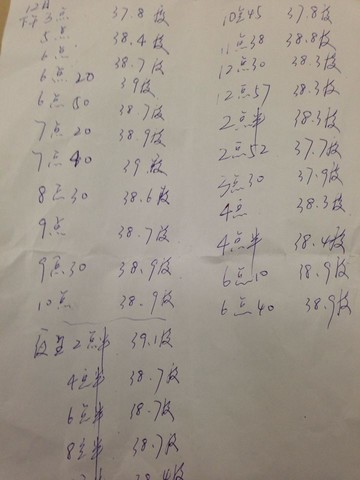 12日
下午3点 37.8度
5点 38.4度
6点 38.7度
6点20 39度
6点50 38.7度
7点20 38.9度
7点40 39度
8点30 38.6度
9点 38.7度
9点30 38.9度
10点 38.9度
夜里2点半 39.1度
4点半 38.7度
6点半 38.7度
8点半 38.7度
38.4度
10点45 37.8度
11点38 38.8度
12点30 38.3度
12点57 38.3度
2点半 38.3度
2点52 37.7度
3点30 37.9度
4点 38.3度
4点半 38.4度
6点10 38.9度
6点40 38.9度